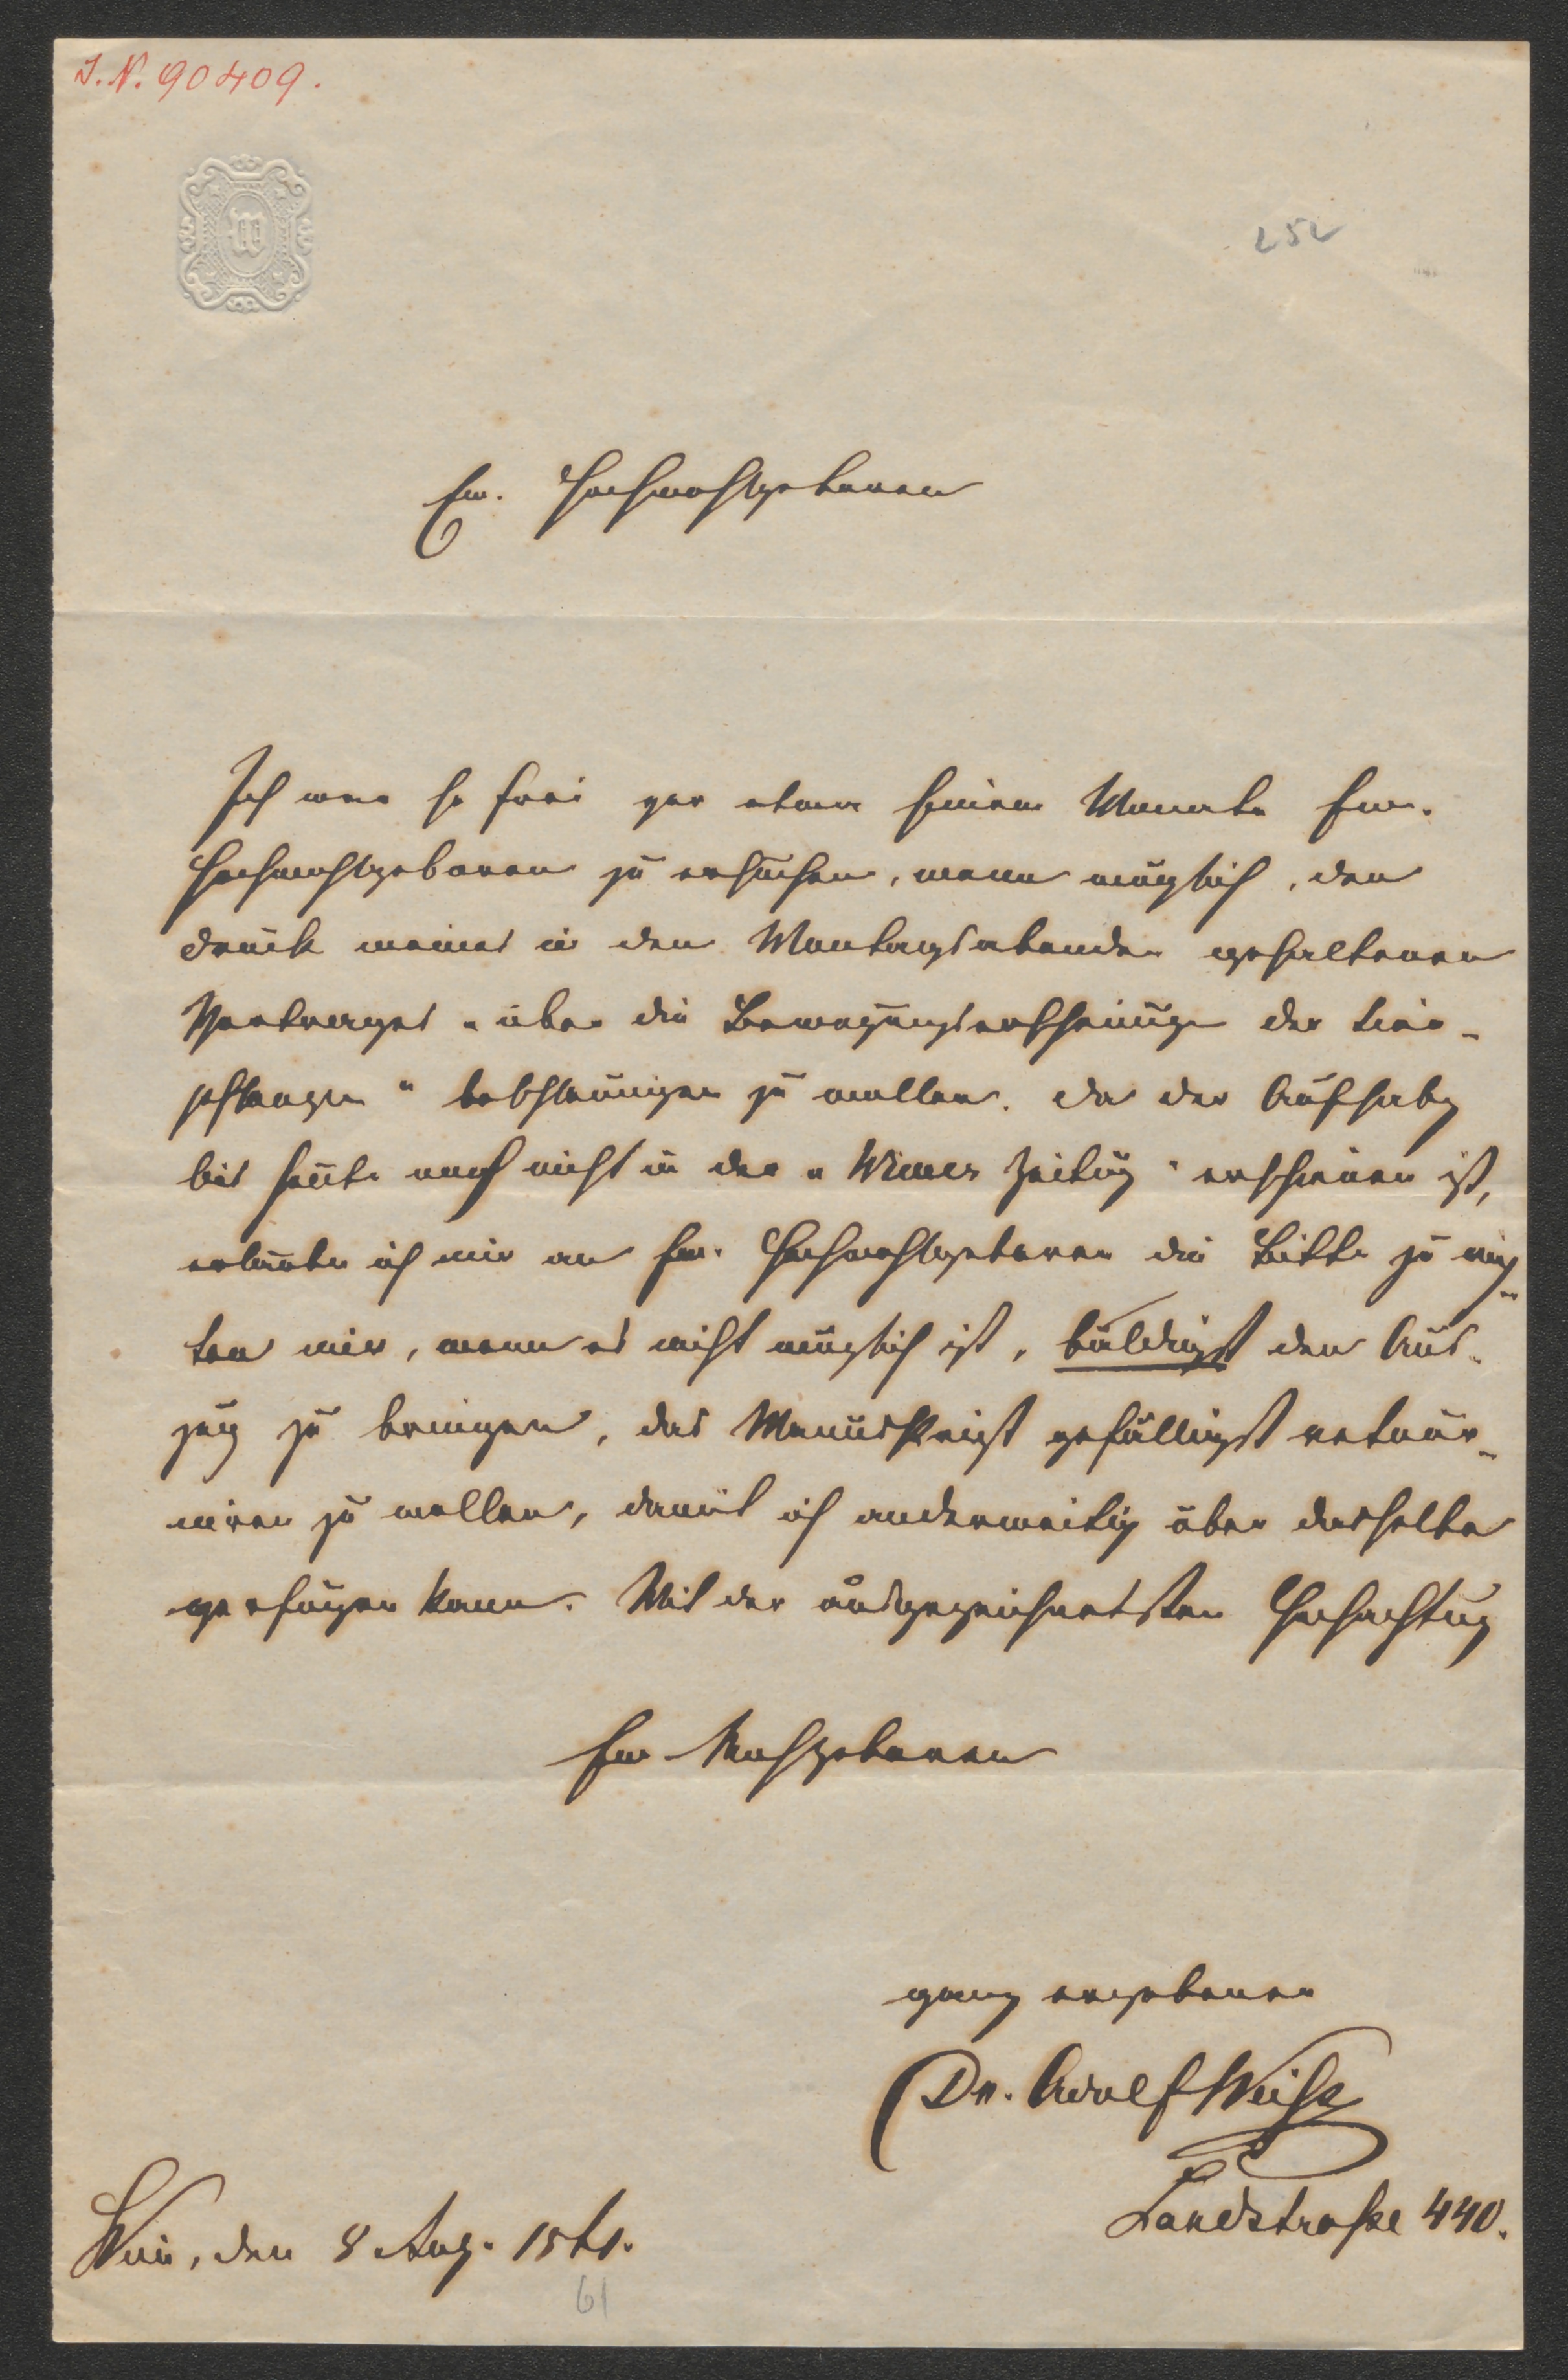 I. N. 90409.
W
252
Ew. Hochwohlgeboren
Ich war so frei vor etwa einem Monate Euer
Hochwohlgeboren zu ersuchen, wenn möglich, den
Druck meines in den Montagsabenden gehaltenen
Vortrages „über die Bewegungserscheinungen der
pflanzen" beschleunigen zu wollen. Da der Aufsatz
bis heute noch nicht in der „Wiener Zeitung" erschienen ist,
erlaube ich mir an Euer Hochwohlgeboren die Bitte zu rich-
ten mir, wenn es nicht möglich ist, baldigst den Aus-
zug zu bringen, das Manuskript gefälligst retour-
niren zu wollen, damit ich anderweitig über dasselbe
verfügen kann. Mit der ausgezeichnetsten Hochachtung
Euer Wohlgeboren
ganz ergebener
Dr. Adolf Weiß
Landstraße 440.
Wien, den 8 Aug. 1861.
61